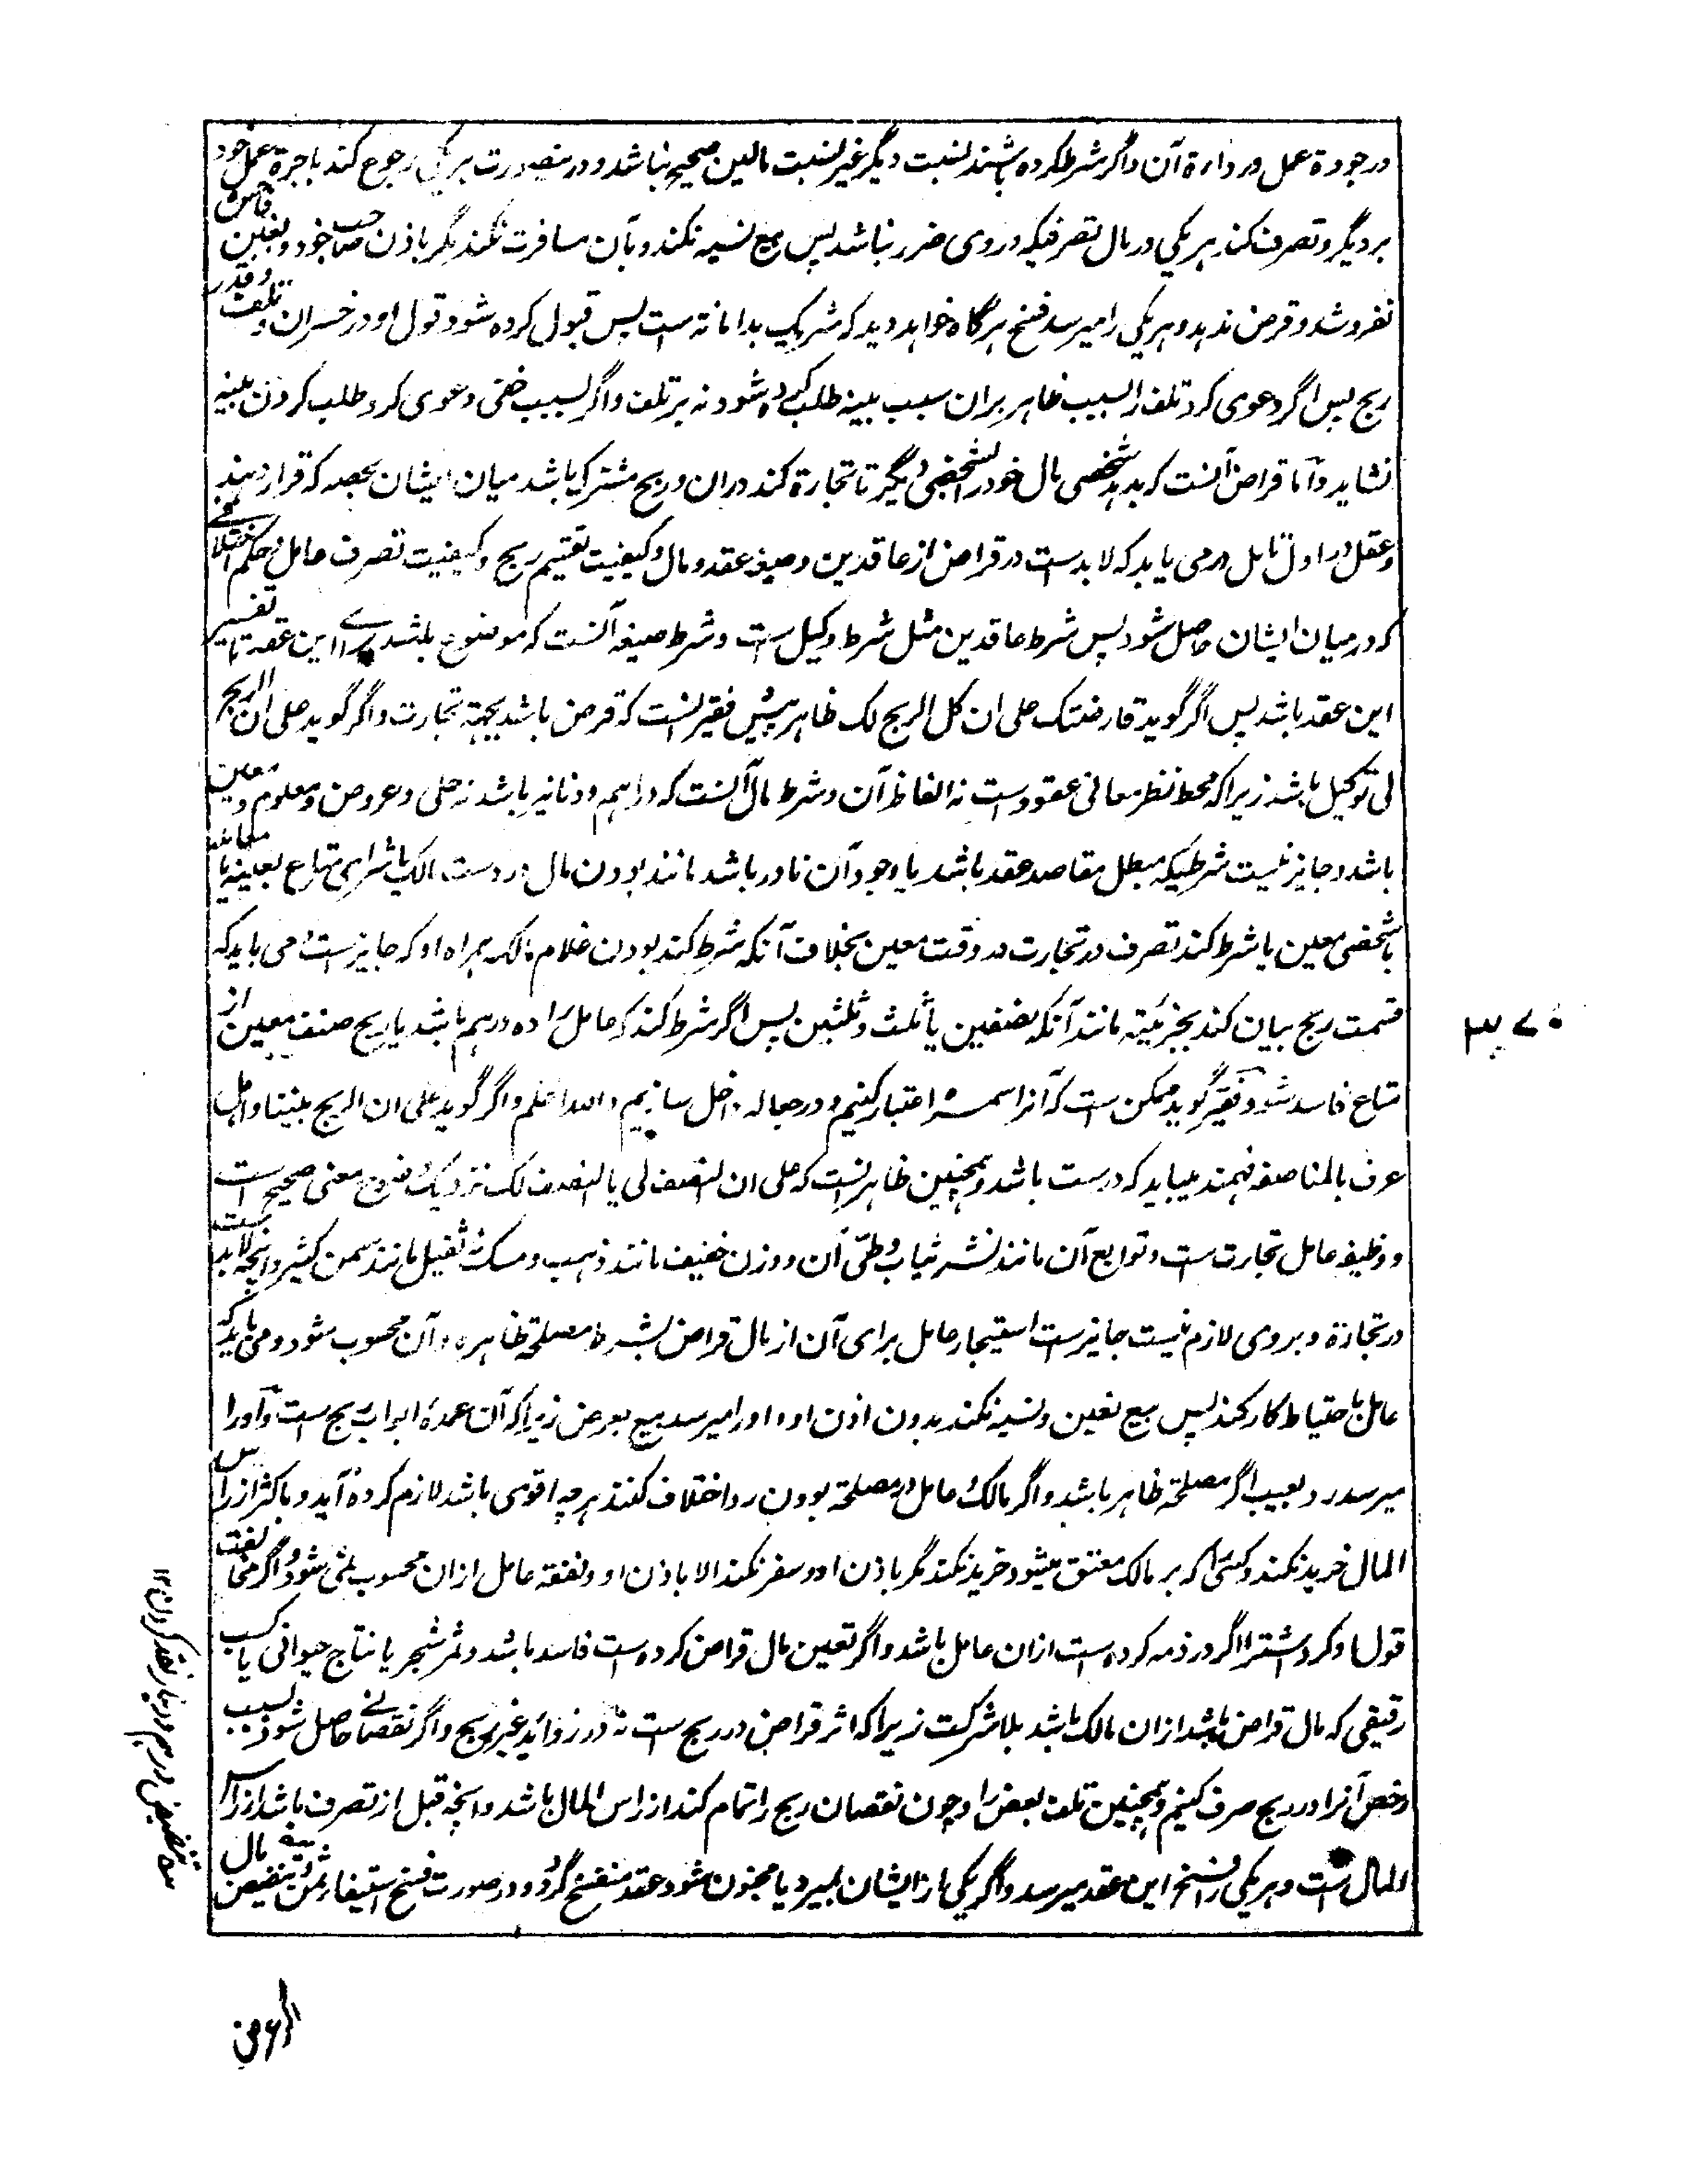 درجودة عمل و رداءة آن و اگر شرط کرده باشند نسبت دیگر غیر نسبت مالین صحیح نباشد و درینصورت هر یکی رجوع کند باجرة عمل خود
بر دیگر و تصرف کند هر یکی در مال تصرفیکه در وی ضرر نباشد پس بیع نسیه نکند و بآن مسافرت نکند مگر باذن صاحب خود و بغبن فاحش
نفروشد و قرض ندهد و هر یکی را میرسد فسخ هرگاه خواهد و ید که شریک ید امانة است پس قبول کرده شود قول او در خسران و تلف و قدر
ربح پس اگر دعوی کرد تلف را بسبب ظاهر بران سبب بینه طلب کرده شود نه بر تلف و اگر بسبب خفی دعوی کرد طلب کردن بینه
نشاید و اما قراض آنست که بدهد شخصی مال خود را بشخصی دیگر تا تجارة کند دران و ربح مشترک باشد میان ایشان بحصه که قرار دهند
و عقل در اول تامل در می یابد که لابد ست در قراض از عاقدین و صیغه عقد و مال و کیفیت تقسیم ربح و کیفیت تصرف عامل و حکم اختلافے
که درمیان ایشان حاصل شود پس شرط عاقدین مثل شرط وکیل ست و شرط صیغه آنست که موضوع باشد برای این عقد تا تفسیر
این عقد باشد پس اگر گوید قارضتک علی ان کل الربح لک ظاهر پیش فقیر آنست که قرض باشد بجهة تجارت و اگر گوید علی ان الربح
لی توکیل باشد زیرا که محط نظر معانی عقود ست نه الفاظ آن و شرط مال آنست که دراهم و دنانیر باشد نه حلی و عروض و معلوم و معین
باشد و جایز نیست شرطیکه مبطل مقاصد عقد باشد یا وجود آن نادر باشد مانند بودن مال در دست مالک یا شرای متاع بعینه یا معامله
با شخصی معین یا شرط کند تصرف در تجارت در وقت معین بخلاف آنکه شرط کند بودن غلام مالک همراه او که جایز ست و می باید که
قسمت ربح بیان کند بجزئیة مانند آنکه نصفین یا ثلث و ثلثین پس اگر شرط کند که عامل را ده درهم باشد یا ربح صنف معین از
متاع فاسد شود فقیر گوید ممکن ست که آنرا سمسره اعتبار کنیم و در جعاله داخل سازیم و الله اعلم و اگر گوید علی ان الربح بیننا و اهل
عرف بالمناصفه فهمند میباید که درست باشد و همچنین ظاهر آنست که علی ان النصف لی یا النصف لک نزدیک وضوح معنی صحیح است
و وظیفه عامل تجارت ست و توابع آن مانند نشر ثیاب و طی آن و وزن خفیف مانند ذهب و مسک نه ثقیل مانند سمن کثیر و آنچه لابد ست
در تجارة و بر وی لازم نیست جایز ست استیجار عامل برای آن از مال قراض بشرط مصلحة ظاهره و آن محسوب شود و می باید که
عامل باحتیاط کار کند پس بیع بغبن و نسیه نکند بدون اذن او و او را میرسد بیع بعرض زیرا که آن عمده ابواب ربح ست و او را
میرسد رد بعیب اگر مصلحة ظاهر باشد و اگر مالک و عامل در مصلحة بودن رد اختلاف کنند هر چه اقوی باشد لازم کرده آید و باکثر از راس
المال خرید نکند و کسی را که بر مالک معتق میشود خرید نکند مگر باذن او و سفر نکند الا باذن او و نفقه عامل ازان محسوب نمی شود و اگر مخالفت
قول او کرد اشترا اگر در ذمه کرده ست ازان عامل باشد و اگر تعین مال قراض کرده ست فاسد باشد و ثمر شجر یا نتاج حیوانی یا کسب
رقیقی که مال قراض باشد ازان مالک باشد بلا شرکت زیرا که اثر قراض در ربح ست نه در زواید غیر ربح و اگر نقصانے حاصل شود بسبب
رخص آنرا در ربح صرف کنیم و همچنین تلف بعض را و چون نقصان ربح را تمام کند از راس المال باشد و آنچه قبل از تصرف باشد از راس
المال ست و هر یکی را فسخ این عقد میرسد و اگر یکی از ایشان بمیرد یا مجنون شود عقد منفسخ گردد و در صورت فسخ استیفاء ثمن و تنضیض بقیه مال
۳۷۰